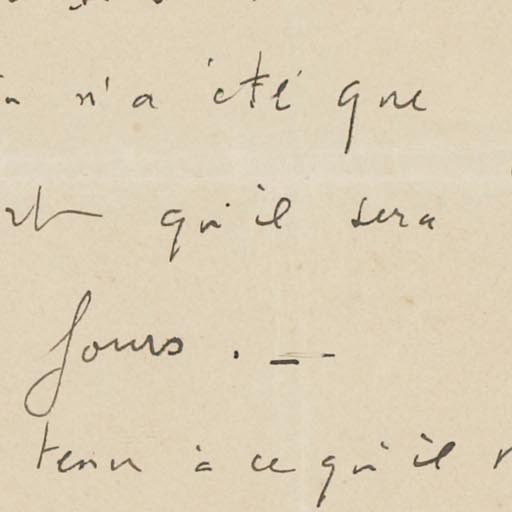 n'a été que
qu'il sera
jours. —
tenu à ce qu'il